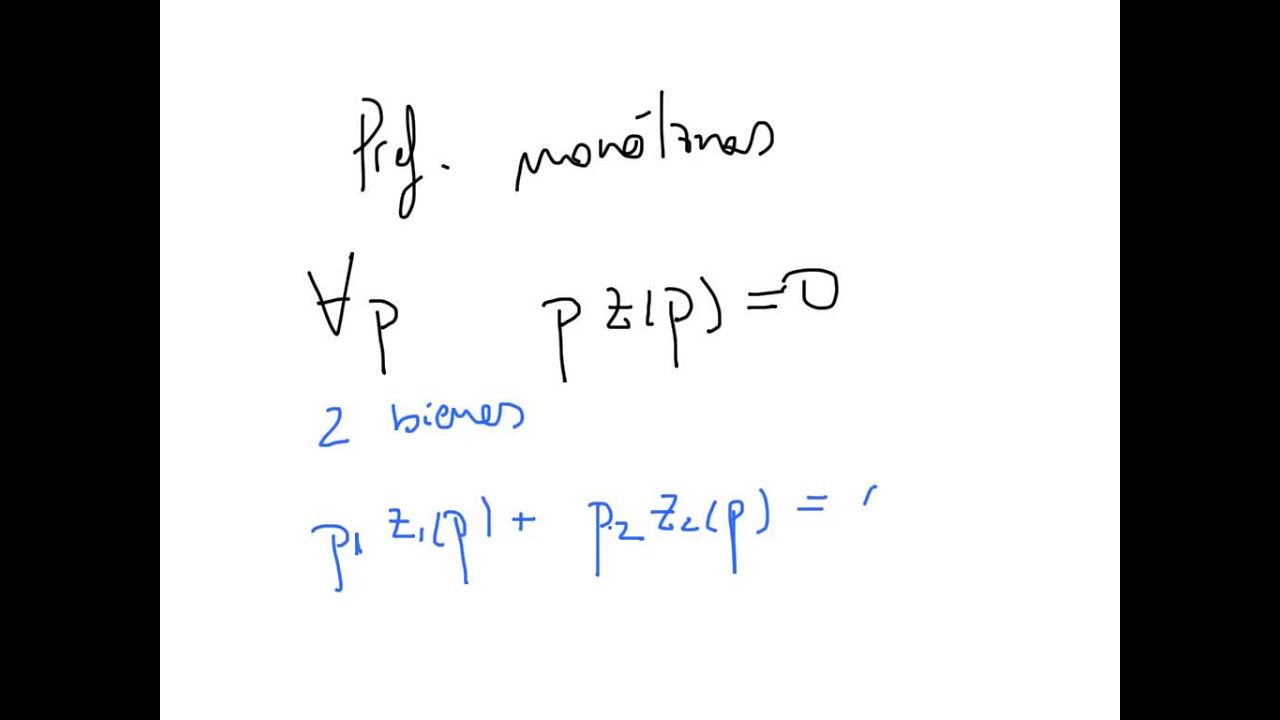 Pref. monótonas
∀p p z(p) = 0
2 bienes
p1 z1(p) + p2 z2(p) =